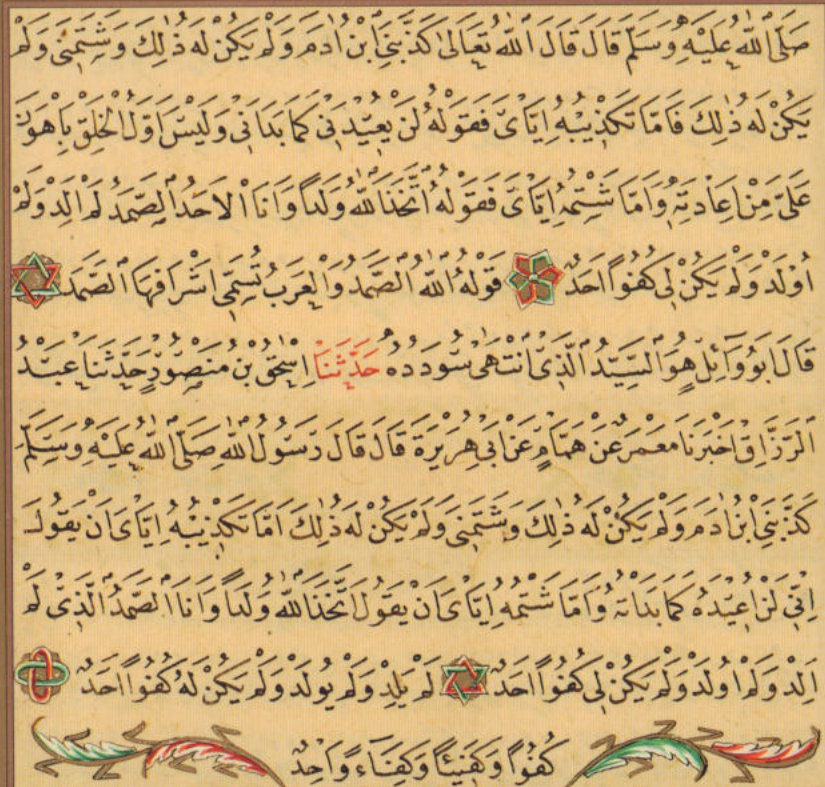 صَلَّى ٱللّٰهُ عَلَيْهِ وَسَلَّمَ قَالَ قَالَ ٱللّٰهُ تَعَالَىٰ كَذَّبَنِي ٱبْنُ اٰدَمَ وَلَمْ يَكُنْ لَهُ ذٰلِكَ وَشَتَمَنِي وَلَمْ
يَكُنْ لَهُ ذٰلِكَ فَاَمَّا تَكْذِيبُهُ اِيَّايَ فَقَوْلُهُ لَنْ يُعِيدَنِي كَمَا بَدَاَنِي وَلَيْسَ اَوَّلُ الْخَلْقِ بِاَهْوَنَ
عَلَيَّ مِنْ اِعَادَتِهِ وَاَمَّا شَتْمُهُ اِيَّايَ فَقَوْلُهُ اتَّخَذَ ٱللّٰهُ وَلَدًا وَاَنَا الْاَحَدُ الصَّمَدُ لَمْ اَلِدْ وَلَمْ
اُولَدْ وَلَمْ يَكُنْ لِي كُفُوًا اَحَدٌ قَوْلُهُ اَللّٰهُ الصَّمَدُ وَالْعَرَبُ تُسَمِّي اَشْرَافَهَا الصَّمَدَ
قَالَ اَبُو وَآئِلٍ هُوَ السَّيِّدُ الَّذِي انْتَهٰى سُودَدُهُ حَدَّثَنَا اِسْحٰقُ بْنُ مَنْصُورٍ حَدَّثَنَا عَبْدُ
الرَّزَّاقِ اَخْبَرَنَا مَعْمَرٌ عَنْ هَمَّامٍ عَنْ اَبِي هُرَيْرَةَ قَالَ قَالَ رَسُولُ ٱللّٰهِ صَلَّى ٱللّٰهُ عَلَيْهِ وَسَلَّمَ
كَذَّبَنِي ابْنُ اٰدَمَ وَلَمْ يَكُنْ لَهُ ذٰلِكَ وَشَتَمَنِي وَلَمْ يَكُنْ لَهُ ذٰلِكَ اَمَّا تَكْذِيبُهُ اِيَّايَ اَنْ يَقُولَ
اِنِّي لَنْ اُعِيدَهُ كَمَا بَدَاْتُهُ وَاَمَّا شَتْمُهُ اِيَّايَ اَنْ يَقُولَ اتَّخَذَ ٱللّٰهُ وَلَدًا وَاَنَا الصَّمَدُ الَّذِي لَمْ
اَلِدْ وَلَمْ اُولَدْ وَلَمْ يَكُنْ لِي كُفُوًا اَحَدٌ لَمْ يَلِدْ وَلَمْ يُولَدْ وَلَمْ يَكُنْ لَهُ كُفُوًا اَحَدٌ
كُفُوًا وَكَفِيئًا وَكِفَاءً وَاحِدٌ